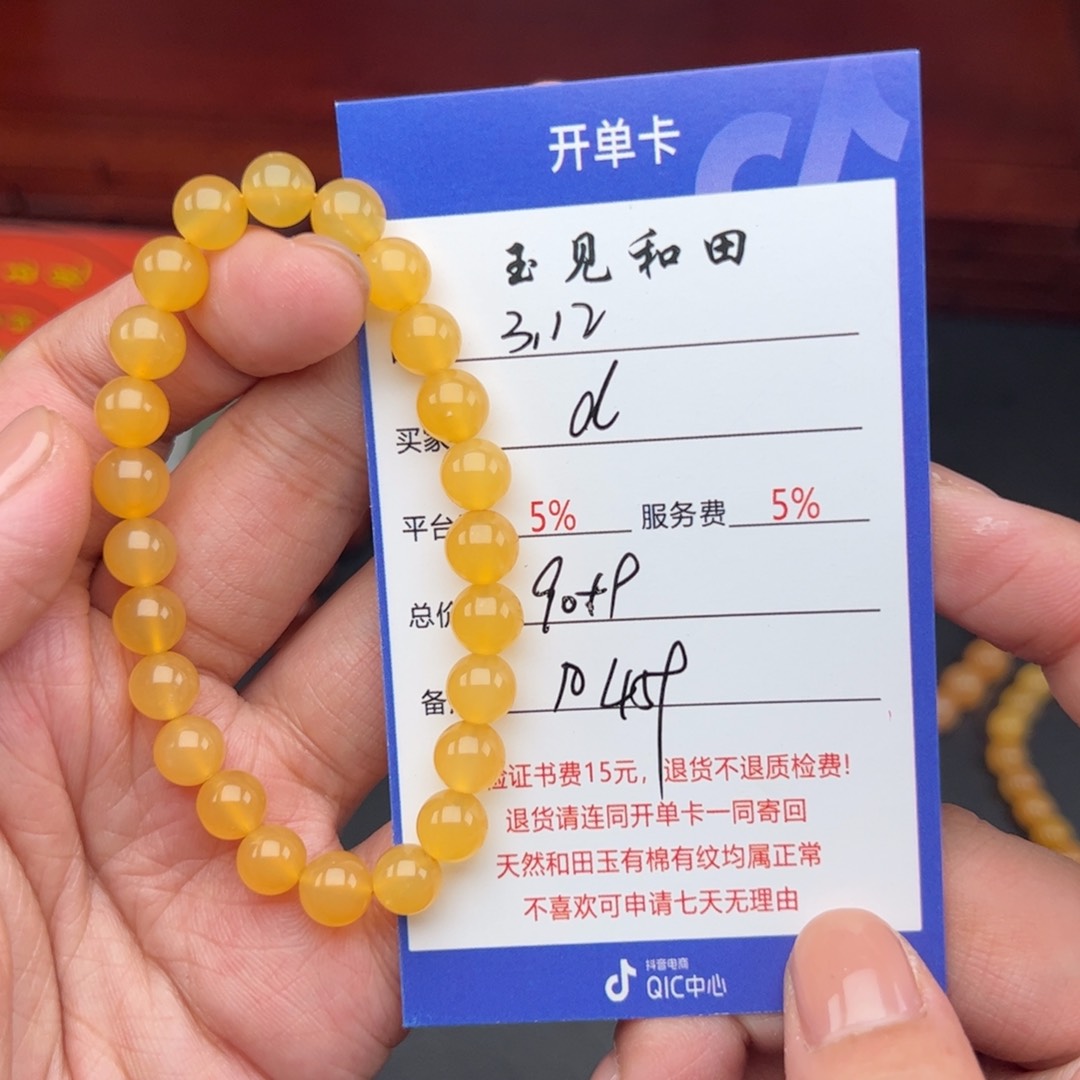 开单卡
玉见和田
3,12
买家 d
平台 5% 服务费 5%
总价 90+9
备
验证书费15元，退货不退质检费!
退货请连同开单卡一同寄回
天然和田玉有棉有纹均属正常
不喜欢可申请七天无理由
抖音电商
QIC中心